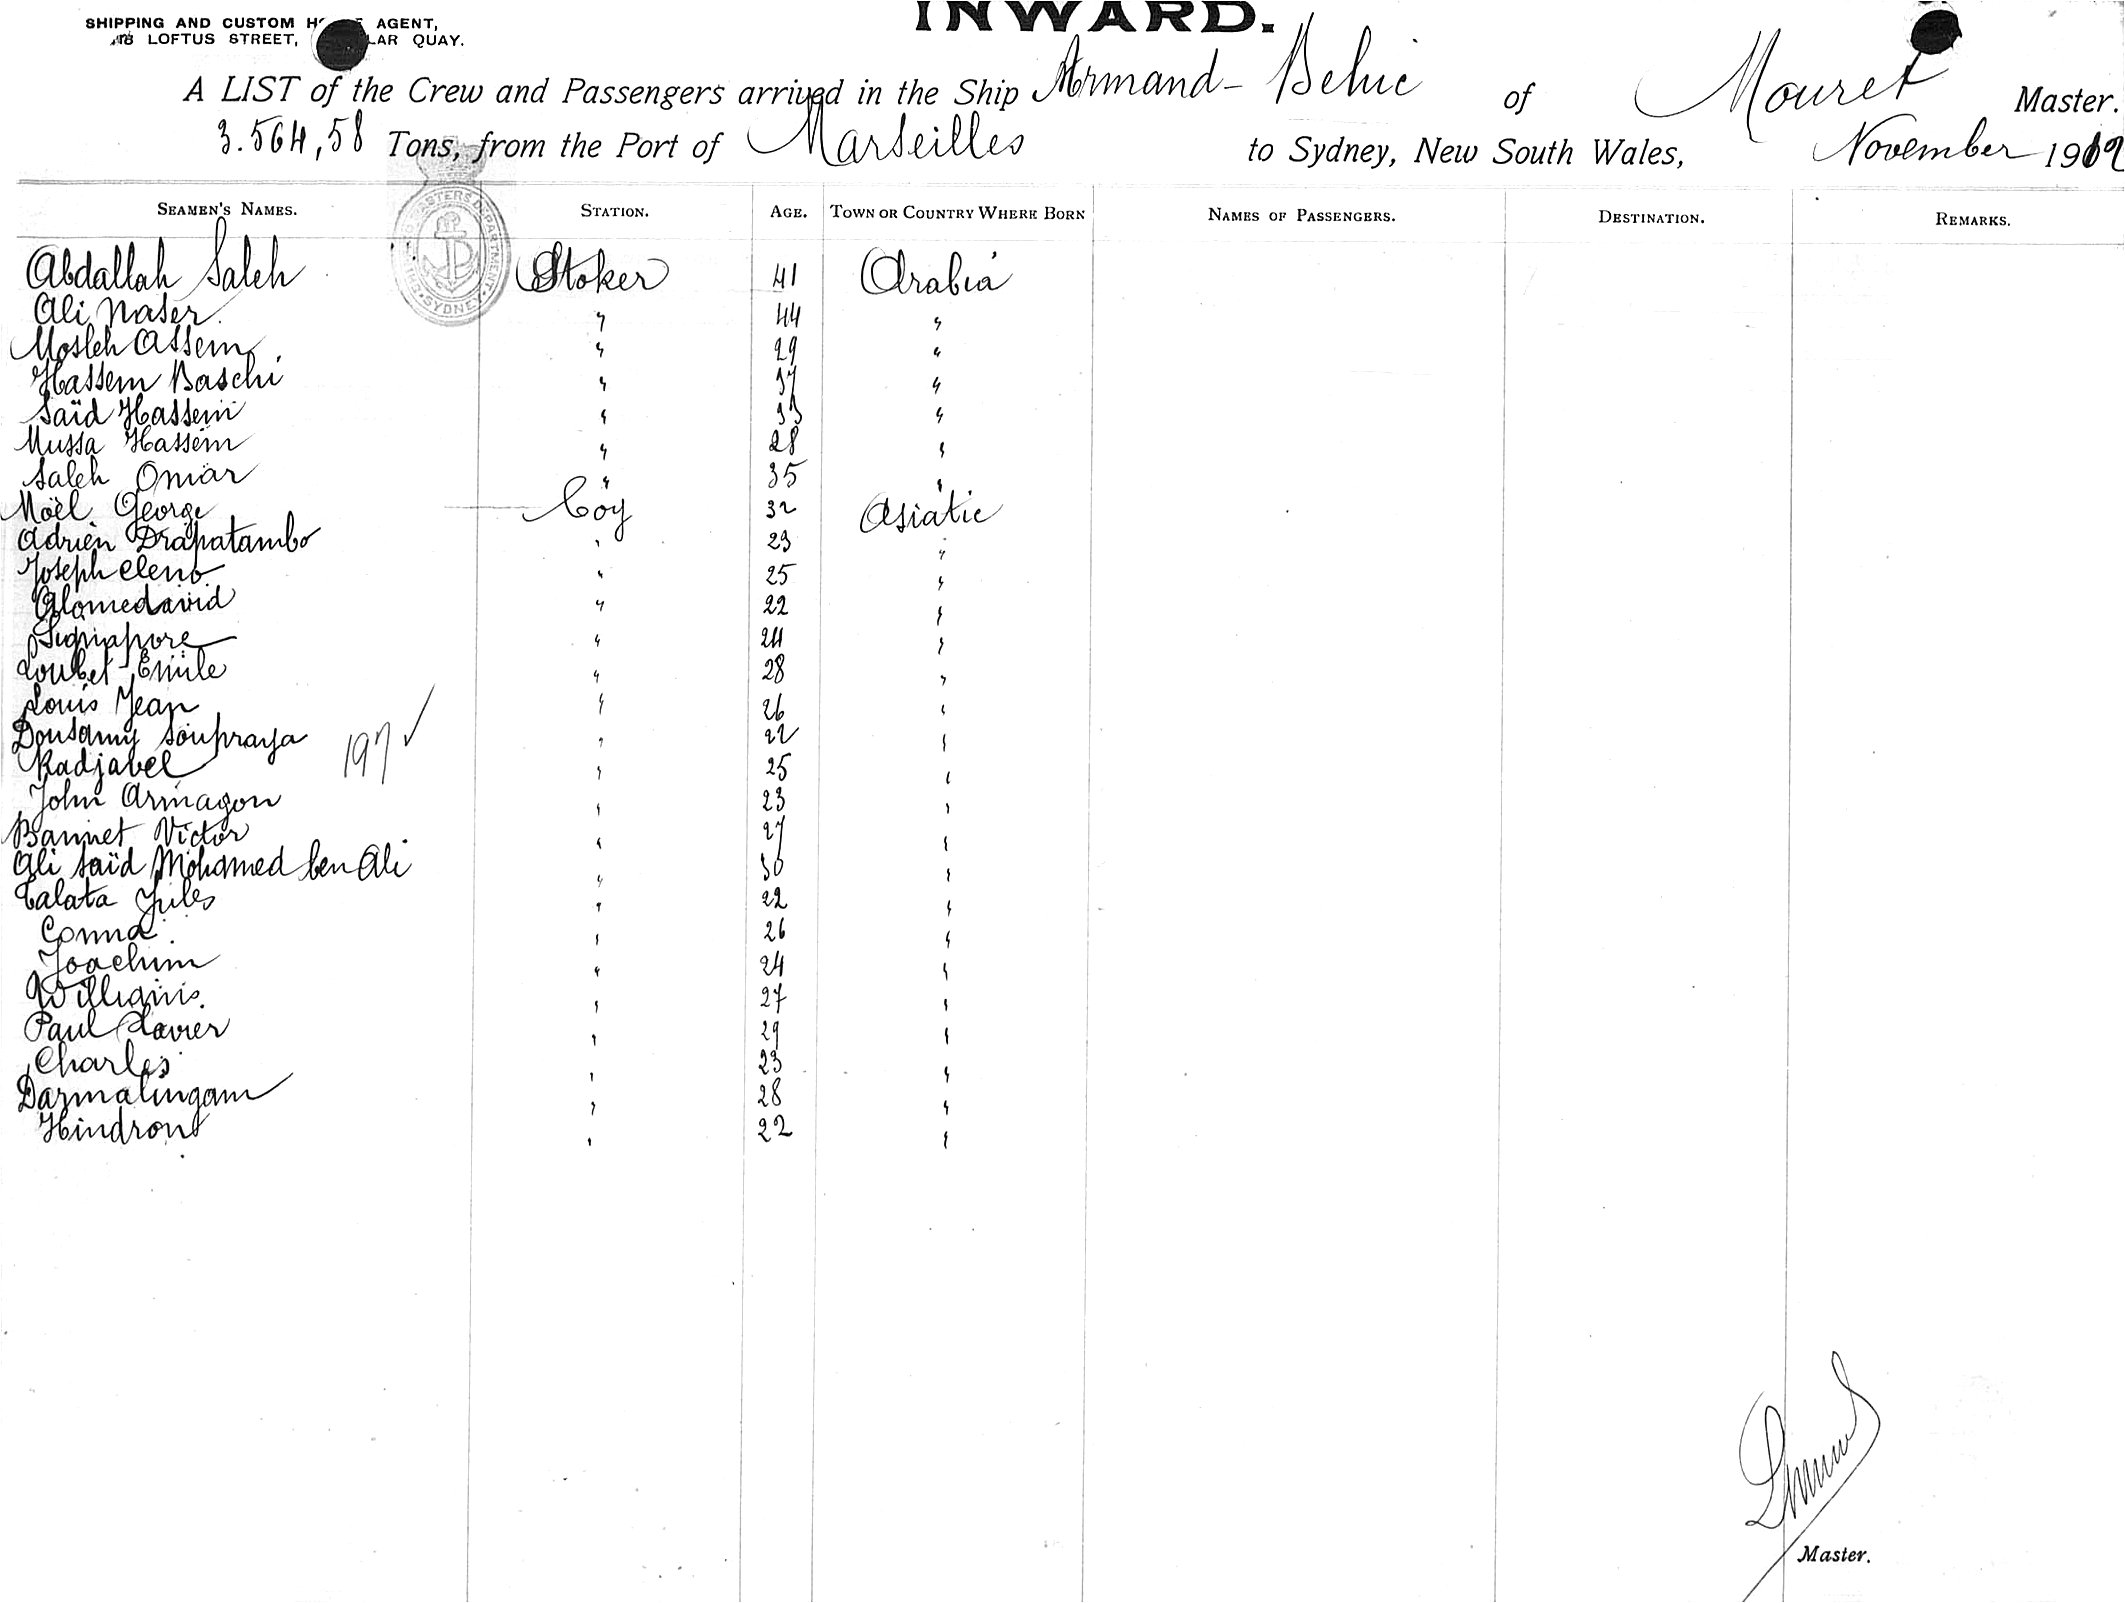 INWARD.
SHIPPING AND CUSTOM H E AGENT,
LOFTUS STREET, LAR QUAY.
A LIST of the Crew and Passengers arrived in the Ship Armand-Behic of Mouret Master.
3.564,58 Tons, from the Port of Marseilles to Sydney, New South Wales, November 1912
SEAMEN'S NAMES. STATION. AGE. TOWN OR COUNTRY WHERE BORN NAMES OF PASSENGERS. DESTINATION. REMARKS.
Abdallah Saleh Stoker 41 Arabia
Ali Naser " 44 "
Mosleh Assem " 29 "
Hassem Baschi " 37 "
Saïd Hassem " 33 "
Mussa Hassem " 28 "
Saleh Omar " 35 "
Moël George Coy 32 Asiatic
Adrien Drapatambo " 23 "
Joseph Cleno " 25 "
Alomedavid " 22 "
" 24 "
Loubet Emile " 28 "
Louis Jean " 26 "
Dousamy Soupraya " 22 "
197 ✓
Radjabel " 25 "
John Armagon " 23 "
Bannet Victor " 27 "
Ali Saïd Mohamed ben Ali " 30 "
Calata Jules " 22 "
Conna " 26 "
Joachim " 24 "
Williams " 27 "
Paul Xavier " 29 "
Charles " 23 "
Darmalingam " 28 "
Hindron " 22 "
Master.